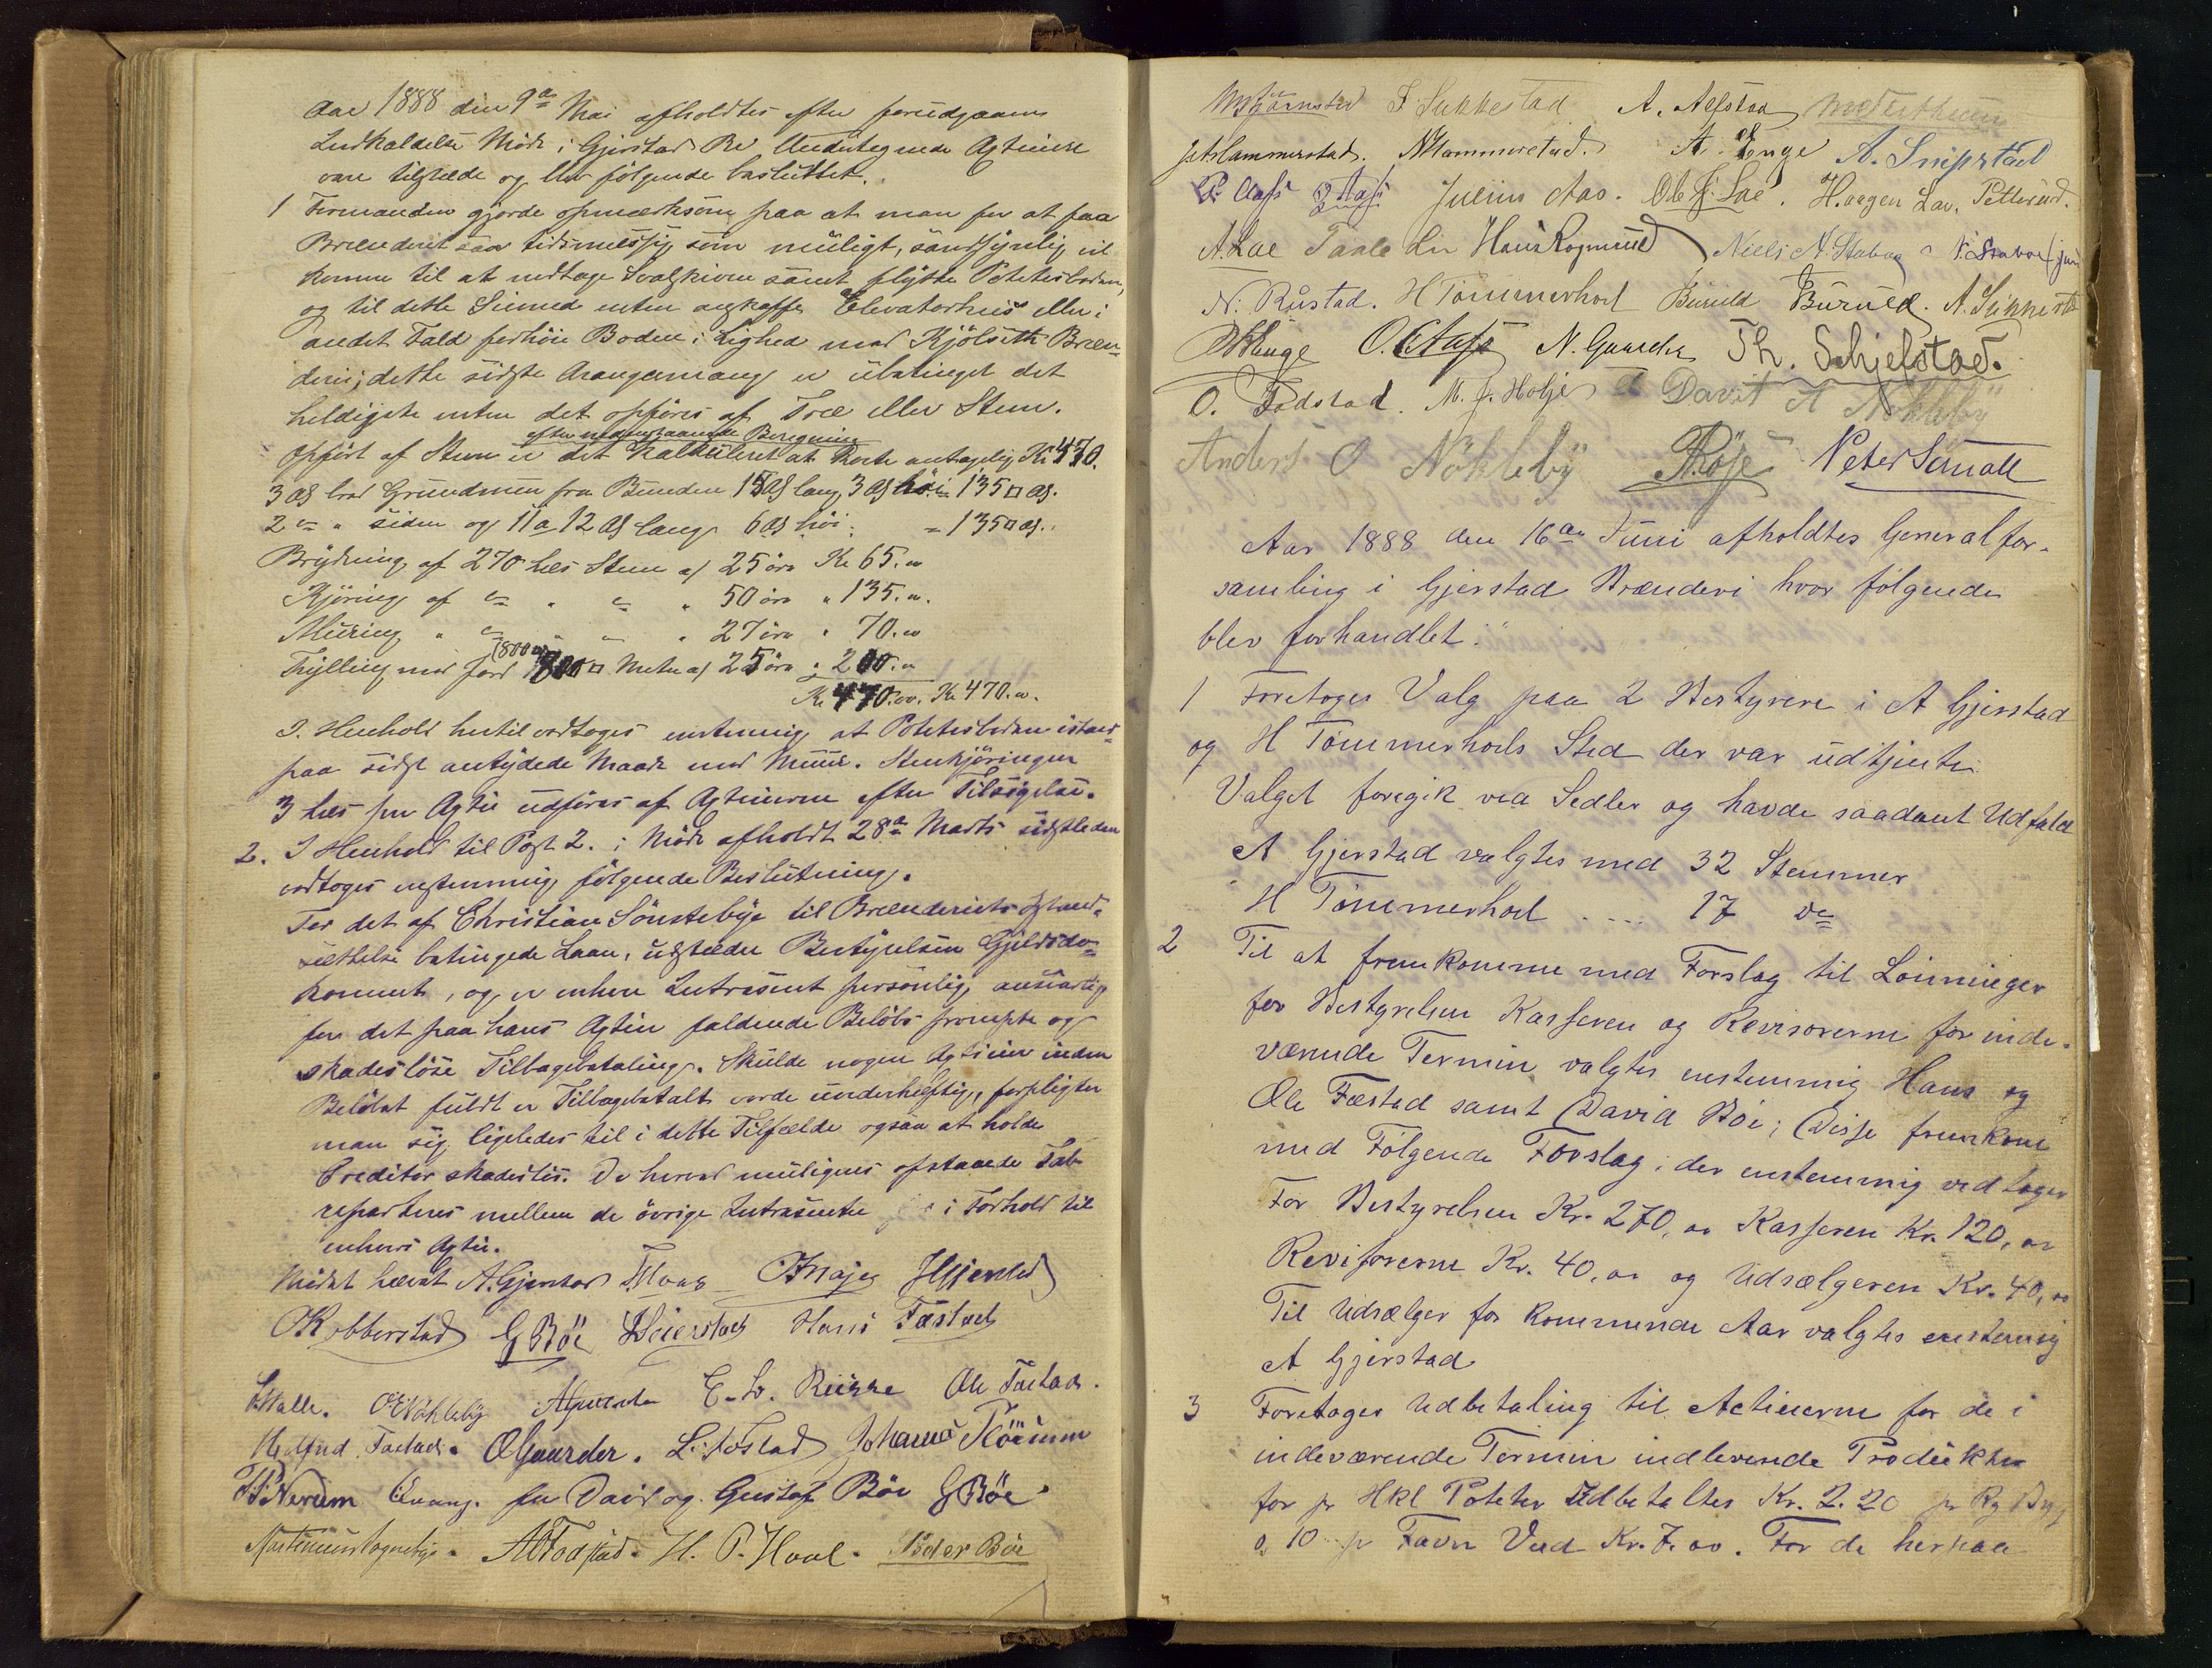 Aar 1888 den 9de Mai afholdtes efter forudgaaen
Indkaldelse Möde i Gjerstad Br. Undertegnede Agtinere
vare tilstede og blev fölgende besluttet.
1 Formanden gjorde opmærksom paa at man for at faa
Brænderiet saa tidsmæssig som muligt, sandsynlig vil
komme til at nedtage Svalskiven samt flytte Potetesboden,
og til dette Siemed enten anskaffe Elevatorhuis eller i
andet Fald forhöie Boden i Lighed med Kjölseth Bræn-
deri; dette sidste Arangemang er übetinget det
heldigste enten det opföres af Træ eller Steen.
efter nedenstaaende Beregning
Opfört af Steen er det kalkuleret at koste antagelig Kr 470.
3 Al bred Grundmuur fra Bunden 15 Al lang 3 Al höi = 135 □ Al.
2 do " siden og 11 a 12 Al lang 6 Al höi = 135 □ Al.
Brydning af 270 læs Steen a/ 25 öre Kr 65. "
Kjöring af do " do " 50 öre " 135. "
Muring " do " " " 27 öre " 70. "
(800
Fylling med Jord 800 □ Meter a/ 25 öre " 200. "
Kr 470.00. Kr 470. "
I Henhold hertil vedtoges enstemmig at Potetesboden istand-
paa sidst antydede Maade med Muur. Steenkjöringen
3 læs per Agtie udföres af Agtinerne efter Tilsigelse.
2. I Henhold til Post 2. i Möde afholdt 28de Marts sidstleden
vedtoges enstemmig fölgende Beslutning.
For det af Christian Sönsteby til Brænderiets Istand-
sættelse betingede Laan, udsteder Bestyrelsen Gjeldsdo-
koment, og er enhver Intresent personlig ansvarlig
for det paa hans Agtie faldende Belöbs prompte og
skadeslöse Tilbagebetaling. Skulde nogen Agtiær inden
Belöbet fuldt er Tilbagebetalt vorde uvederhæftig, forpligter
man sig ligeledes til i dette Tilfælde ogsaa at holde
Creditor skadeslös. De herved muligens opstaaede Tab
reparteres mellem de övrige Intresenter i Forhold til
enhvers Agtie.
Mödet hævet A. Gjerstad T. Moas JGjerstad
OKobberstad G Böe Hoierstad Hans Fæstad
JHalle. ONökleby E. L. Rüsse Ole Fæstad.
Fæstad. O Gaarder. L. Fostad Johannes
PNerüm Enang. for David og Gustaf Böe G Böe
AOFodstad. H. P. Hval. Peder Böe
MBjörnstad F. Sukkestad A. Alfstad
Hammerstad. NHammerstad. A. Enge A. Snipstad
P. Aass J. Aass Julius Aas. Ole J. Lae. Haagen Lav. Petterud.
A. Lae Paale Lie Hans Rognerud Niels N. Staboe N. Staboe jun
N. Rustad. H Tömmerhol Buruld Buruld. A. Sukkestad
PHauge O. Aass N. Gaarder Th. Schjelstad.
O. Fodstad. M. J. Holje Davit A Nökleby
Anders O Nökleby PBöje Peter Semall
Aar 1888 den 16de Juni afholdtes Generalfor-
samling i Gjerstad Brænderi hvor fölgende
blev forhandlet:
1 Foretoges Valg paa 2 Bestyrere i A Gjerstad
og H Tömmerhols Sted der var udtjente
Valget foregik ved Sedler og havde saadant Udfald
A Gjerstad valgtes med 32 Stemmer
H Tömmerhol .... 17 do
2 Til at fremkomme med Forslag til Lönninger
for Bestyrelsen Kasseren og Revisorerne for inde-
værende Termin valgtes enstemmig Hans og
Ole Fæstad samt David Böe; Disse fremkom
med Fölgende Forslag; der enstemmig vedtoges
For Bestyrelsen Kr. 270, oo Kasseren Kr. 120, oo
Revisorerne Kr. 40, oo og Udsælgeren Kr. 40, oo
Til Udsælger for kommende Aar valgtes enstemig
A Gjerstad
3 Foretoges Udbetaling til Actieerne for de i
indeværende Termin indleverede Produkter
for pr Hkl Poteter Udbetaltes Kr. 2.20 pr Kg Byg
o, 10 pr Favn Ved Kr. 7. oo. For de herpaa